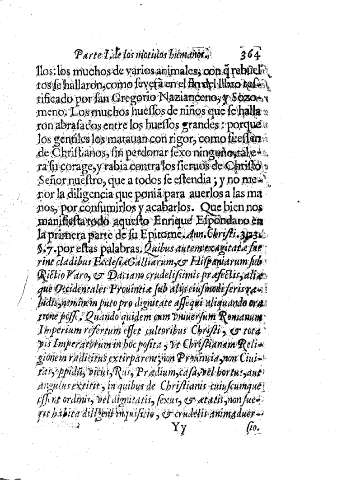 Parte I. de los motiuos humanos. 364
llos: los muchos de varios animales, con q̃ rebuel
tos se hallaron, como se verà en el fin del libro tes-
tificado por san Gregorio Nazianceno, y Sozo-
meno. Los muchos huessos de niños que se halla
ron abrasados entre los huessos grandes: porque
los gentiles los matauan con rigor, como si essen
de Christianos, sin perdonar sexo ninguno, tal e-
ra su corage, y rabia contra los sieruos de Christo
Señor nuestro, que a todos se estendia; y no me-
nor la diligencia que ponia para auerlos a las ma
nos, por consumirlos y acabarlos. Que bien nos
manifiesta todo aquesto Enrique Espondano en
la primera parte de su Epitome. Ann. Christi.
§. 7. por estas palabras. Quibus autem exagitatæ fue
rint cladibus Ecclesiæ Galliarum, & Hispaniarum sub
Rictio Varo, & Daciano crudelissimis præfectis, aliæ
que Occidentales Prouintiæ sub alijs eiusmodi feris ra-
bidis, neminem puto pro dignitate assequi aliquando ora
tione posse. Quando quidem cum vniuersum Romanum
Imperium refertum esset cultoribus Christi, & tora
vis Imperatorum in hoc posita, vt Christianam Reli-
gionem radicitus extirparent, non Prouincia, non Ciui-
tas, oppidũ, vicus, Rus, Prædium, casa, vel hortus, aut
angulus extitit, in quibus de Christianis cuiuscumque
essent ordinis, vel dignitatis, sexus, & ætatis, non fue-
que habita diligens inquisitio, & crudelis animaduer-
Yy sio.